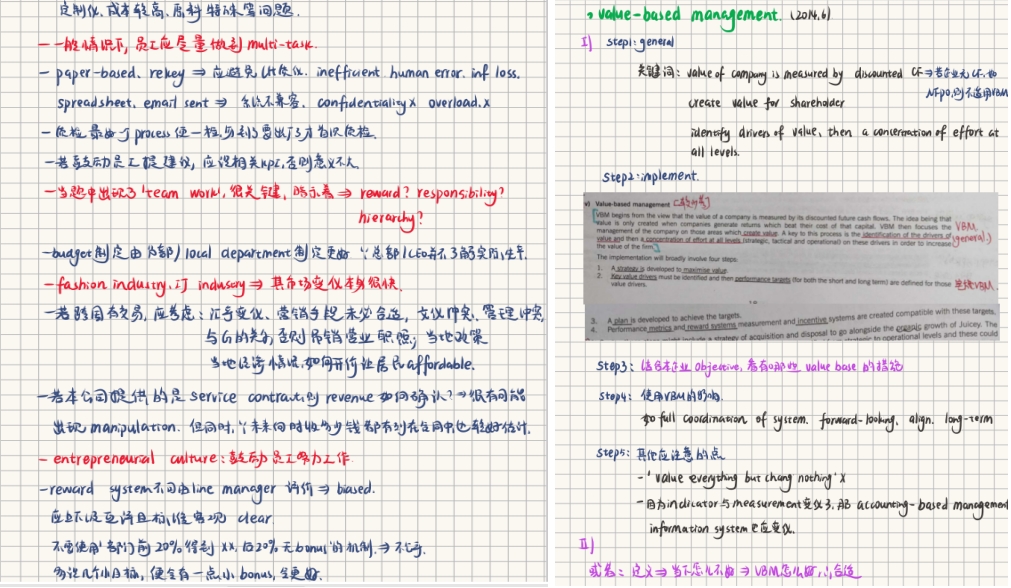 定制化、成本较高、原料特殊等问题.
- 一般情况下, 员工应尽量做到 multi-task.
- paper-based、rekey ⇒ 应避免 inefficient. human error. inf loss.
spreadsheet、email sent ⇒ 系统不兼容. confidentiality× overload.×
- 质检最好 process 便一检, 别到
- 若鼓励员工提建议, 应设相关KPI, 否则意义不大
- 当题中出现了 'team work', 很关键, 暗示着 ⇒ reward? responsibility?
hierarchy?
- budget制定由 local department 制定更好
- fashion industry、IT industry ⇒ 其市场变化本身很快.
- 若跨国有交易, 应考虑: 汇率变化、营销手段未必合适, 文化冲突, 管理冲突
与G的关系, 否则吊销营业执照; 当地政策
当地经济情况, 如何开价让居民affordable.
- 若本公司提供的是 service contract, 则 revenue 如何确认? ⇒ 很有可能
出现 manipulation. 但同时,
- entrepreneurial culture: 鼓励员工努力工作.
- reward system不可由line manager 评价 ⇒ biased.
clear.
不要使用 '部门前20%得到 xx, 后20%无bonus' 的机制.
多设几个小目标, 便会有一点小 bonus, 会更好.
, value-based management. (2014.6)
I) step1: general
关键词: value of company is measured by discounted CF ⇒ 若企业无CF, 如
NFPO, 则不适用VBM
create value for shareholder
identify drivers of value, then a concentration of effort at
all levels.
Step2: implement.
v) Value-based management
VBM begins from the view that the value of a company is measured by its discounted future cash flows. The idea being that
value is only created when companies generate returns which beat their cost of that capital. VBM then focuses the
management of the company on those areas which create value. A key to this process is the identification of the drivers of
value and then a concentration of effort at all levels (strategic, tactical and operational) on these drivers in order to increase
the value of the firm.
VBM
general.
The implementation will broadly involve four steps.
1. A strategy is developed to maximise value.
2. Key value drivers must be identified and then performance targets (for both the short and long term) are defined for those
value drivers.
实施VBM.
3. A plan is developed to achieve the targets.
4. Performance metrics and reward systems measurement and incentive systems are created compatible with these targets.
might include a strategy of acquisition and disposal to go alongside the organic growth of Juicey. The
to operational levels and these could
Step3: 结合本企业 objective, 看有哪些 value base 的措施
Step4: 使用VBM的好处.
如 full coordination of system. forward-looking. align. long-term
Step5: 其他应注意的点
- 'value everything but chang nothing' ×
- 因为indicator 与 measurement变化了, 那 accounting-based management
information system 也应变化.
II)
或者: 定义 ⇒ 当下怎么不好 ⇒ VBM怎么好, 合适